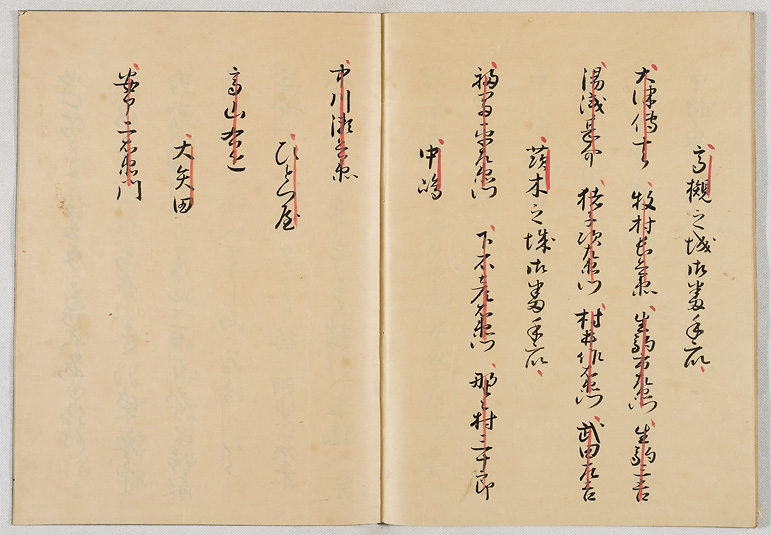 高槻之城御番手衆、
大津傳十郎 牧村長兵衛 生駒市左衛門 生駒三吉
湯浅甚介 猪子次左衛門 村井作右衛門 武田左吉
茨木之城御番手衆、
福富平左衛門 下石彦右衛門 野々村三十郎
中嶋
中川瀬兵衛
ひとつ屋
高山右近
大矢田
安部二右衛門